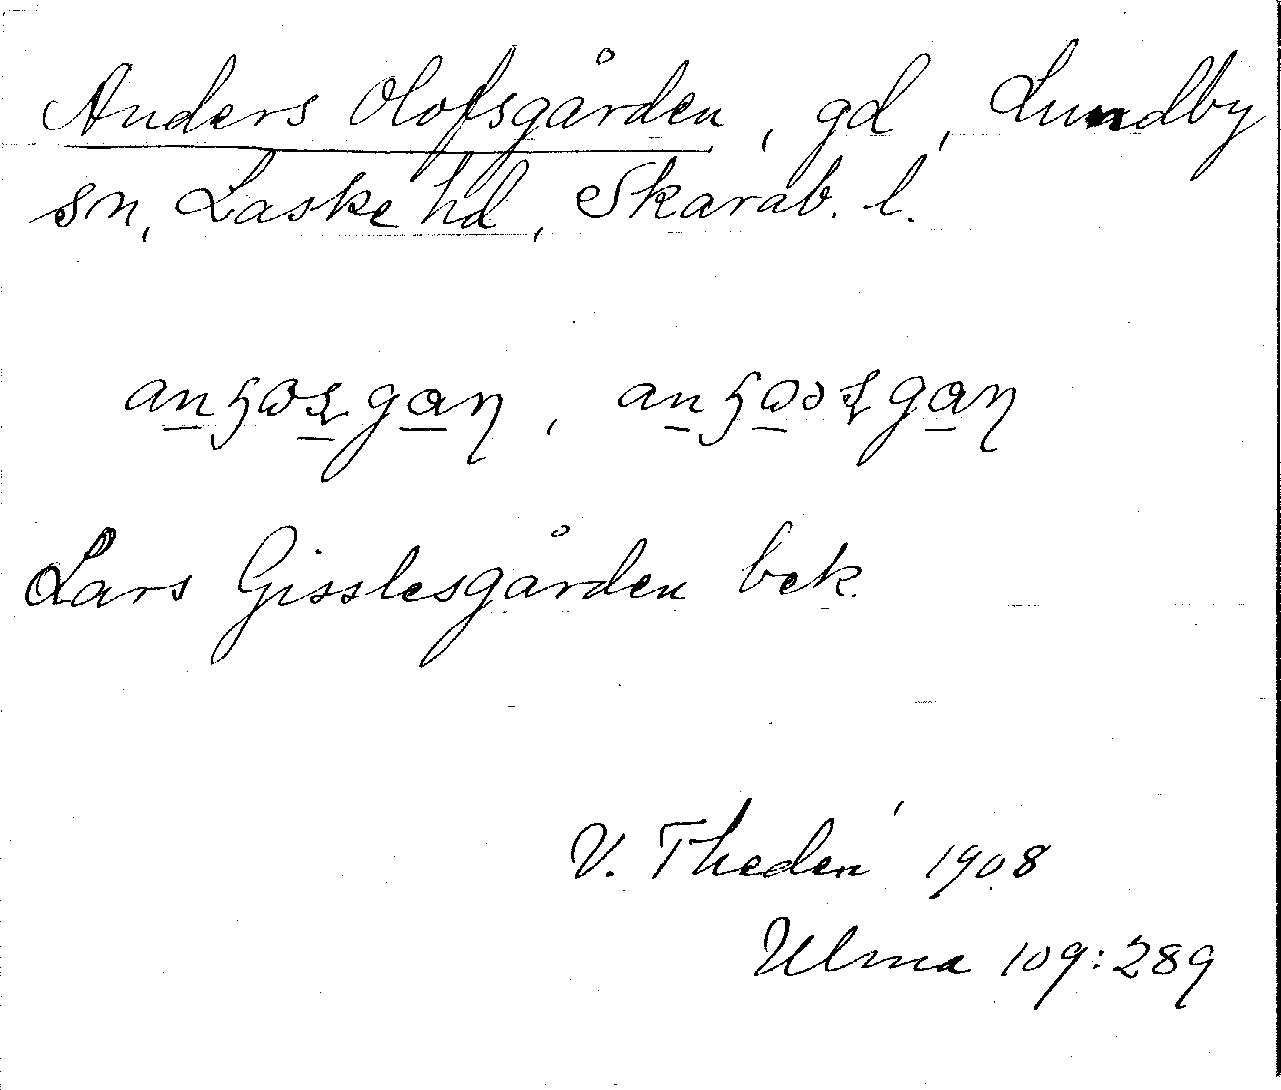 Anders Olofsgården, gd, Lundby
sn, Laske hd, Skarab. l.
Lars Gisslesgården bek.
V. Thedén 1908
Ulma 109:289